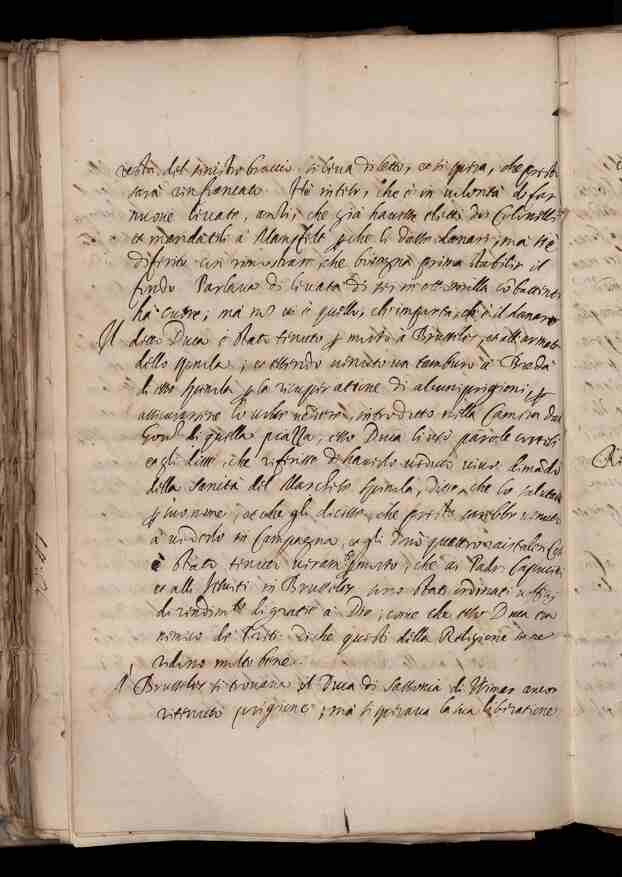 resta del sinistro braccio, si leva di letto, et si spera, che presto
sarà rinfrancato. Ho inteso, che è in volontà di far
nuove levate, anzi, che già havesse eletti due Colonelli
et mandatili à Mansfelt perche li desse danari; ma s'è
differito con rimostrare, che bisogna prima stabilir il
fondo. Parlava di levata di sei in otto milla combattenti
ha cuore, mà non vi è quello, ch'importa, ch'è il danaro
Il detto Duca è stato tenuto per morto à Brusseles, et all'armata
dello Spinola; et essendo venuto un tamburo à Bredà
di esso Spinola per la ricuperatione di alcuni prigioni, et per
assicurarse lo volse vedere, introdotto nella Camera del
Gov.r di quella piazza, esso Duca li usò parole cortesi
et gli disse, che riferisse d'haverlo veduto vivo. Dimandò
della sanità del Marchese Spinola, disse, che lo salutasse
per suo nome, et che gli dicesse, che presto sarebbe venuto
à vederlo in Campagna, et gli donò quattro
è stato tenuto veram.te per morto, che ai Padri Capucini
et alli Iesuiti in Brusseles sono stati ordinati uffitij
di rendim.to di gratie à Dio, come che esso Duca era
nemico de Preti. di che questi della Religione se ne
ridono molto bene.
À Brusseles si trovava il Duca di Sassonia di Vimar ancor
ritenuto prigione; mà si sperava la sua liberatione